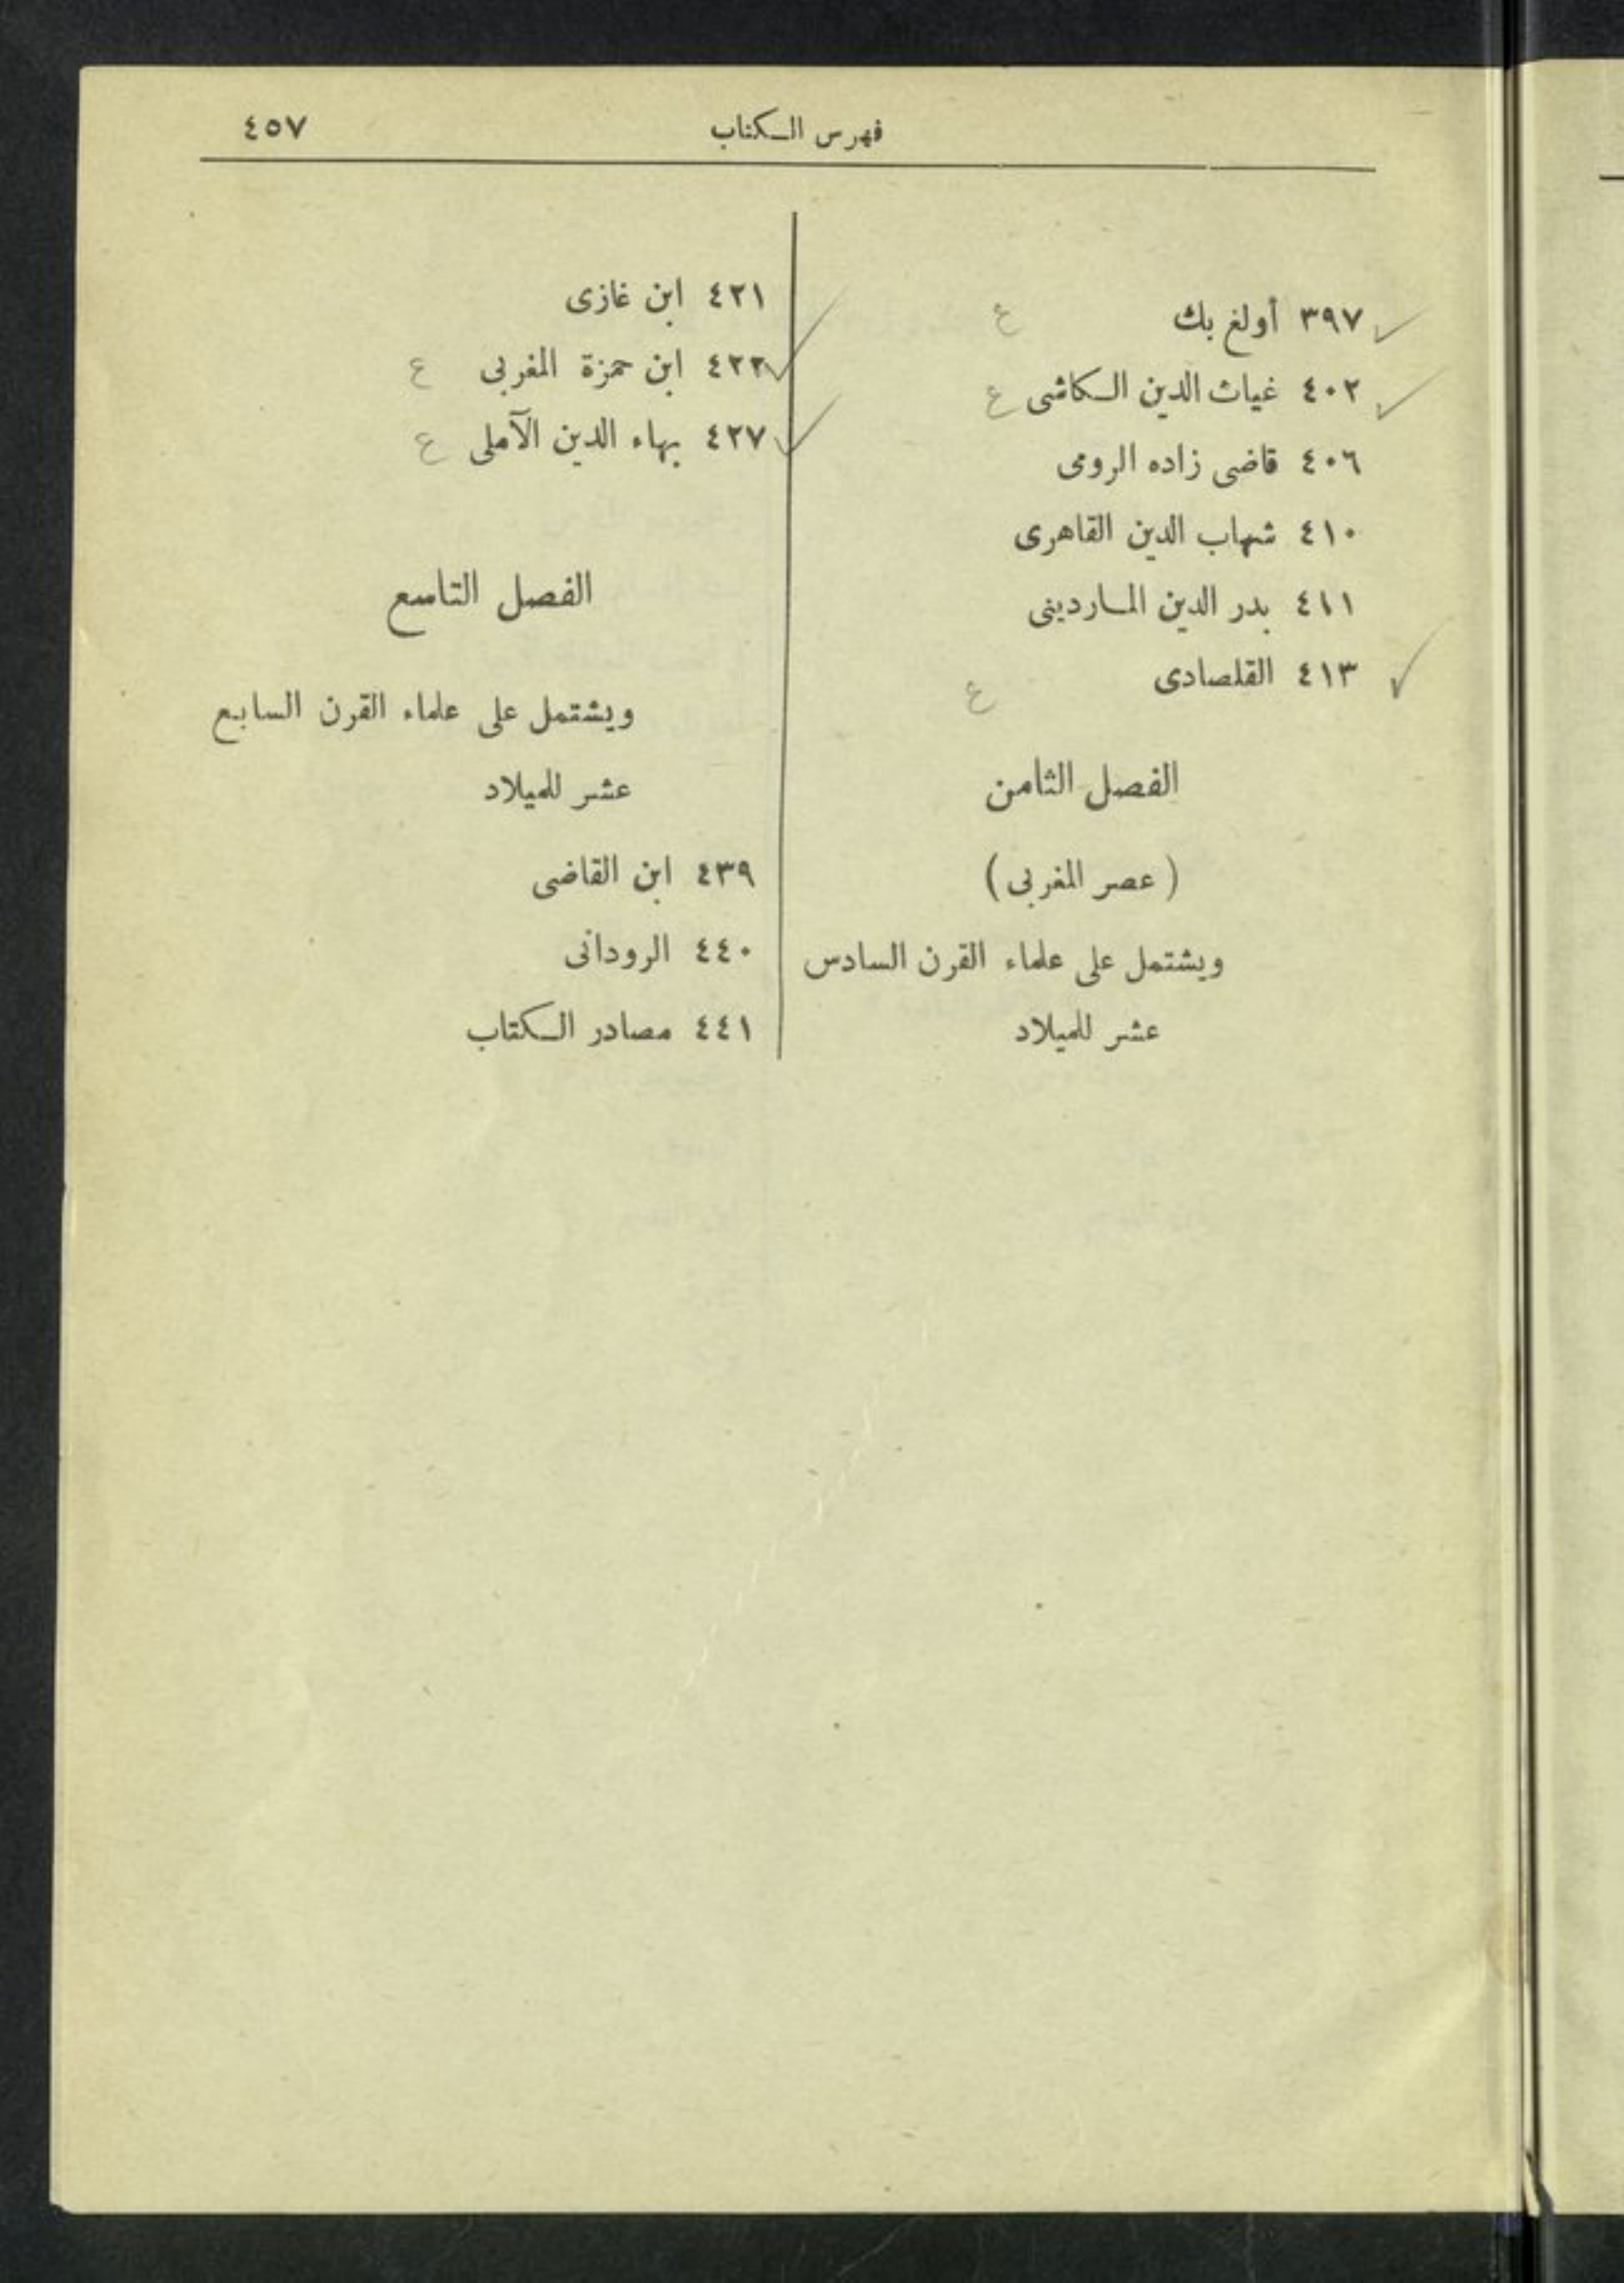 فهرس الكتاب ٤٥٧
٣٩٧ أولغ بك ع
٤٠٢ غياث الدين الكاشى ع
٤٠٦ قاضى زاده الرومى
٤١٠ شهاب الدين القاهرى
٤١١ بدر الدين الماردينى
٤١٣ القلصادى ع
الفصل الثامن
( عصر المغربى )
ويشتمل على علماء القرن السادس
عشر للميلاد
٤٢١ ابن غازى
٤٢٢ ابن حمزة المغربى ع
٤٢٧ بهاء الدين الآملى ع
الفصل التاسع
ويشتمل على علماء القرن السابع
عشر للميلاد
٤٣٩ ابن القاضى
٤٤٠ الرودانى
٤٤١ مصادر الكتاب